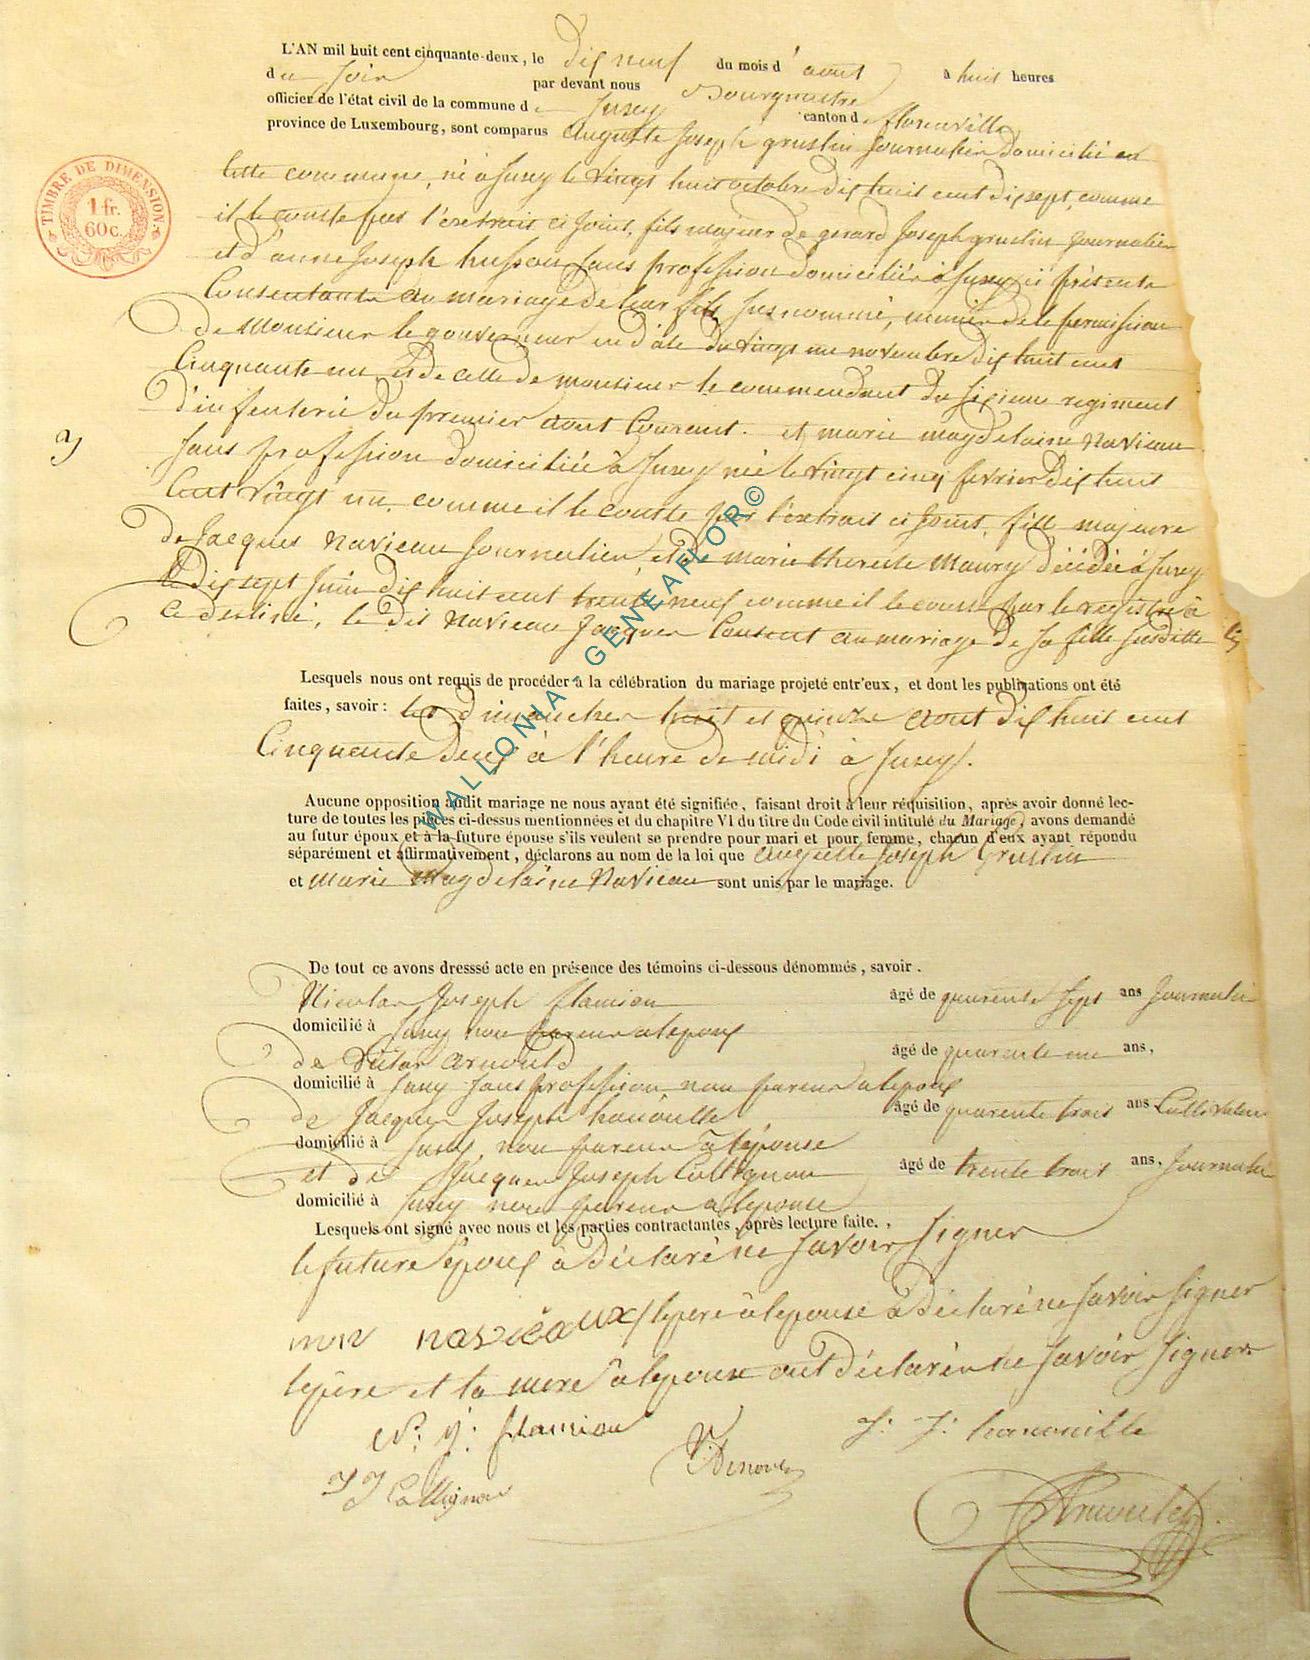 L'AN mil huit cent cinquante-deux, le dix neuf du mois d'aout à huit heures
du soir par devant nous Bourgmestre
officier de l'état civil de la commune de Jusey canton de florenville
province de Luxembourg, sont comparus auguste Joseph gruslin Journalier Domicilié en
cette commune, né à Jusey le vingt huit octobre dix huit cent dix sept, comme
il le conste par l'extrait ci joint, fils majeur de gerard Joseph gruslin Journalier
et d'anne Joseph husson sans profession domiciliés à Jusey ici présents
Consentants au mariage de leur fils susnommé, muni de la permission
de Monsieur le gouverneur en date du vingt un novembre dix huit cent
Cinquante un et de celle de monsieur le commendant du sixieme regiment
d'infenterie du premier aout Courant. et marie magdelaine Navieau
sans profession domiciliée à Jusey née le vingt cinq fevrier dix huit
Cent vingt un, comme il le conste par l'extrait ci Joint, fille majeure
de Jacques Navieau Journalier, et de marie therese Maury décédée à Jusey
le dix sept Juin dix huit cent trente neuf comme il le conste par le registre à
ce destiné, le dit Navieau Jacques Consent au mariage de sa fille susditte
Lesquels nous ont requis de procéder à la célébration du mariage projeté entr'eux, et dont les publications ont été
faites, savoir : les dimanches huit et quinze aout dix huit cent
Cinquante deux à l'heure de midi à Jusey.
Aucune opposition audit mariage ne nous ayant été signifiée, faisant droit à leur réquisition, après avoir donné lec-
ture de toutes les pièces ci-dessus mentionnées et du chapitre VI du titre du Code civil intitulé du Mariage, avons demandé
au futur époux et à la future épouse s'ils veulent se prendre pour mari et pour femme, chacun d'eux ayant répondu
séparément et affirmativement, déclarons au nom de la loi que auguste Joseph Gruslin
et Marie Magdelaine Navieau sont unis par le mariage.
De tout ce avons dresssé acte en présence des témoins ci-dessous dénommés, savoir.
Nicolas Joseph flamion âgé de quarente sept ans Journalier
domicilié à Jusey non parens a lepoux
de Victor arnould âgé de quarente un ans,
domicilié à Jusey sans profession non parens a lepoux
de Jacques Joseph hanouille âgé de quarente trois ans Cultivateur
domicilié à Jusey, non parens à lépouse
et de Jacques Joseph Collignon âgé de trente trois ans, Journalier
domicilié à Jusey non parens a lepouse
Lesquels ont signé avec nous et les parties contractantes, après lecture faite.,
le future époux à Déclaré ne savoir signer
navieaux lepere à lepouse à Déclaré ne savoir signer
lepère et la mere à lepoux ont déclaré ne savoir signer
N: J: flamion
J: J: hanouille
V: Arnould
J J Collignon
Arnould
WALLONIA - GENEAFLOR©
TIMBRE DE DIMENSION
1 fr.
60 c.